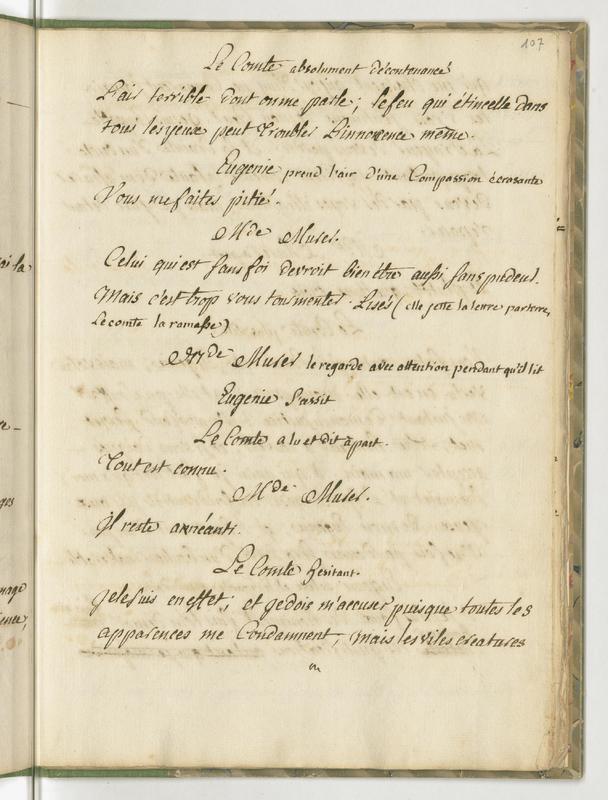 107
Le Comte absolument décontenancé
L'air terrible dont on me parle; le feu qui étincelle dans
tous les yeux peut troubler l'innocence même.
Eugenie prend l'air d'une Compassion écrasante
Vous me faites pitié.
Mde Murer.
Celui qui est sans foi devroit bien être aussi sans pudeur.
Mais c'est trop vous tourmenter. Lisés (elle jette la lettre par terre,
le comte la ramasse)
Mde Murer le regarde avec attention pendant qu'il lit
Eugenie s'assit
Le Comte a lu et dit à part.
Tout est connu.
Mde Murer.
Il reste anéanti.
Le Comte hesitant.
Je le suis en effet; et je dois m'accuser puisque toutes les
apparences me Condamnent, mais les viles creatures
ai la
ges
nage